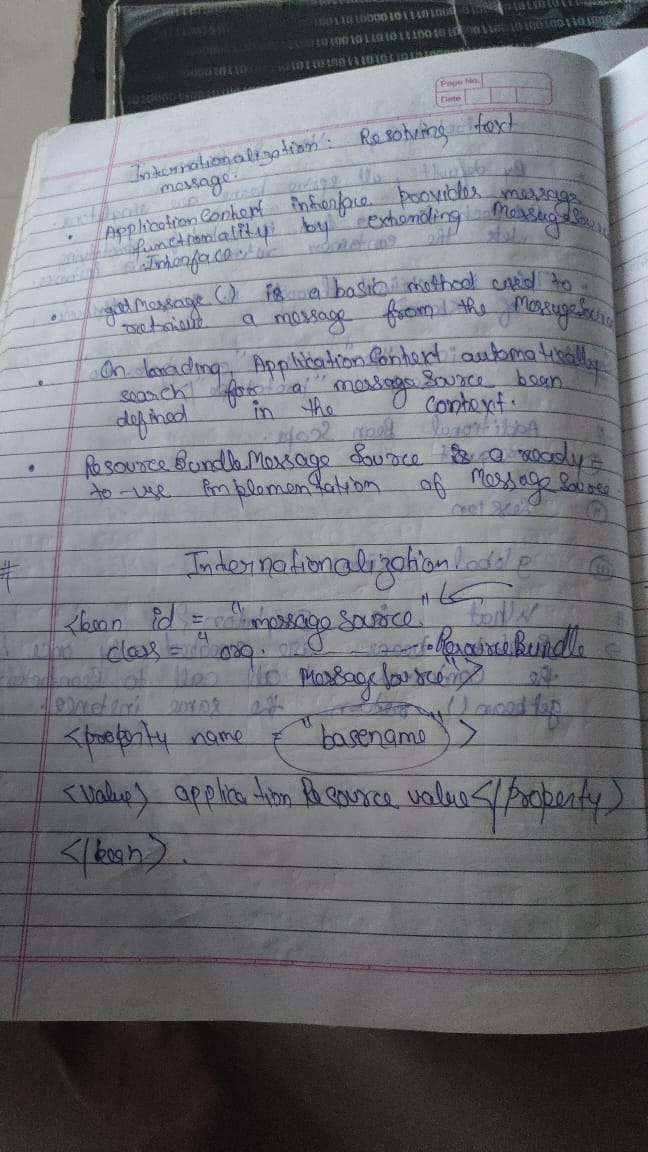 Page No.
Date
Internationalization: Resolving text
message.
• Application Context interface provides message
functionality by extending MessageSour
Interface.
• getMessage() is a basic method used to
retrieve a message from the MessageSource
• On loading, Application Context automatically
search for a message Source bean
defined in the context.
• Resource Bundle Message Source is a ready-
to-use implementation of Message Source.
# Internationalization
<bean id = "message source"
class = "org. Resource Bundle
Message Source">
<property name = "basename">
<value> application Resource value </property>
</bean>.